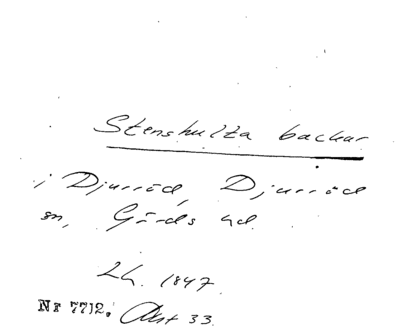 Stenshulta backar
i Djurröd, Djurröd
sn, Gärds hd.
Lh. 1847.
Nr 7712. Akt 33.